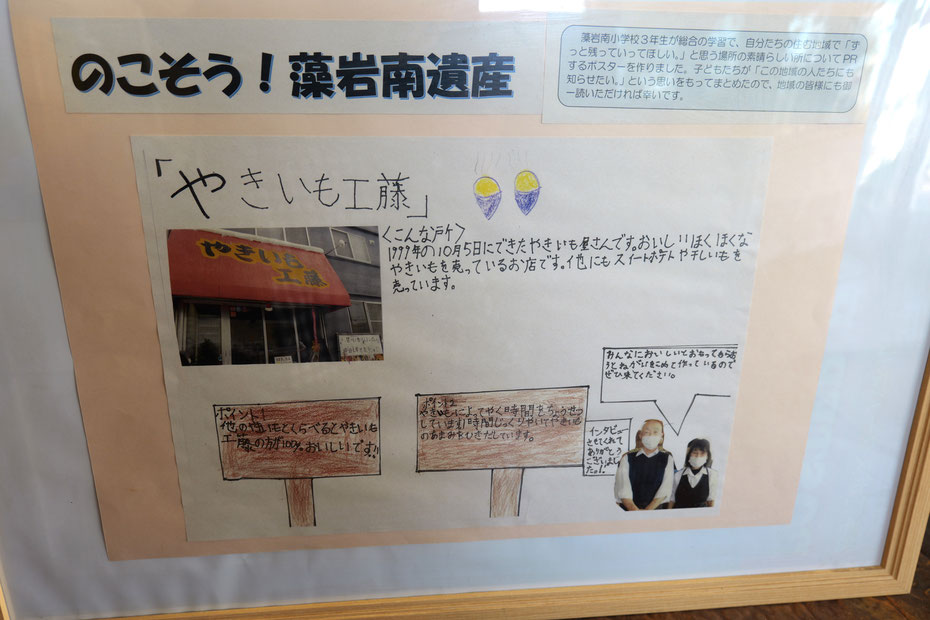 のこそう！藻岩南遺産
藻岩南小学校３年生が総合の学習で、自分たちの住む地域で「ず
っと残っていってほしい。」と思う場所の素晴らしい所についてPR
するポスターを作りました。子どもたちが「この地域の人たちにも
知らせたい。」という思いをもってまとめたので、地域の皆様にも御
一読いただければ幸いです。
「やきいも工藤」
やきいも
工藤
〈こんな所〉
1999年の10月5日にできたやきいも屋さんです。おいしいほくほくな
やきいもを売っているお店です。他にもスイートポテトや干しいもを
売っています。
ポイント1
他のやいもとくらべるとやきいも
工藤の方が100%おいしいです!!
ポイント2
やきいもによってやく時間をちょうせつ
しています1時間じっくりやいてやきいも
のあまみをひきだしています。
みんなにおいしいとおもってもらお
うとねがいをこめて作っているので
ぜひ来てください。
インタビュー
させてくれて
ありがとう
ございまし
た。